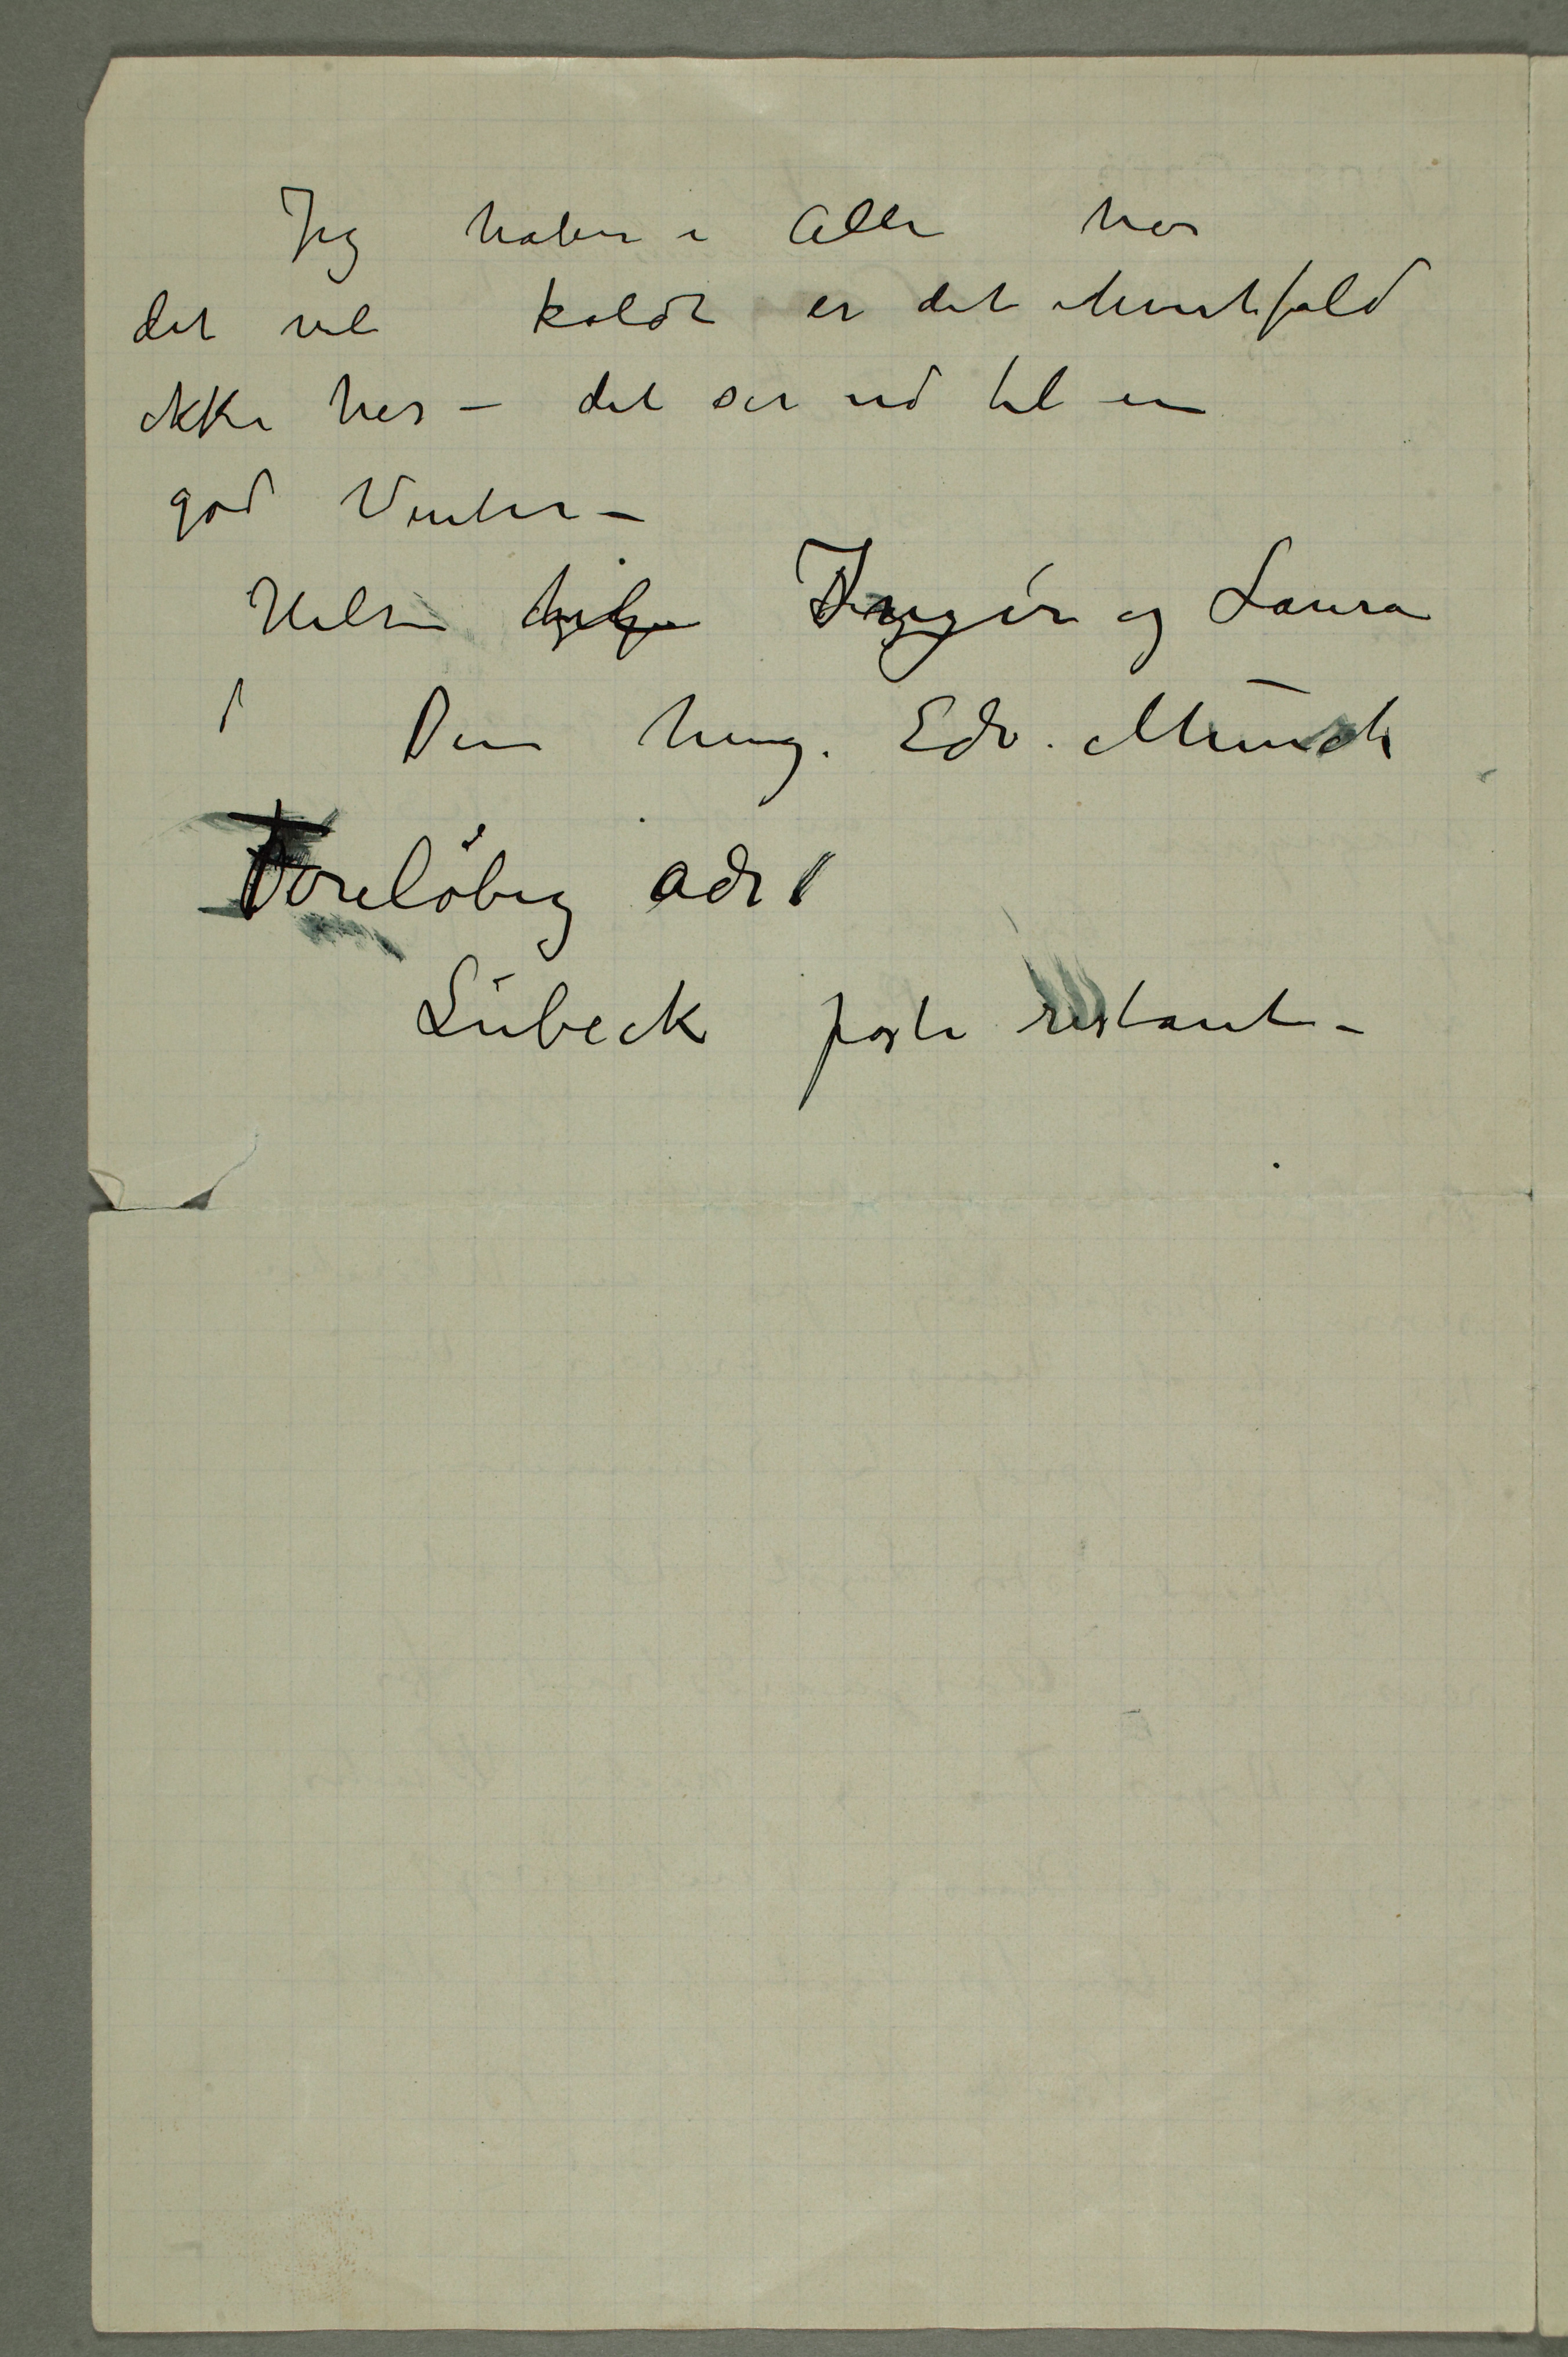 Jeg haber i Alle har
det vel koldt er det i hvertfald
ikke her – det ser ud til en
god Vinter –
Hilsen Inger og Laura
Din heng. Edv. Munch
Foreløbig adr
Lübeck poste restante –